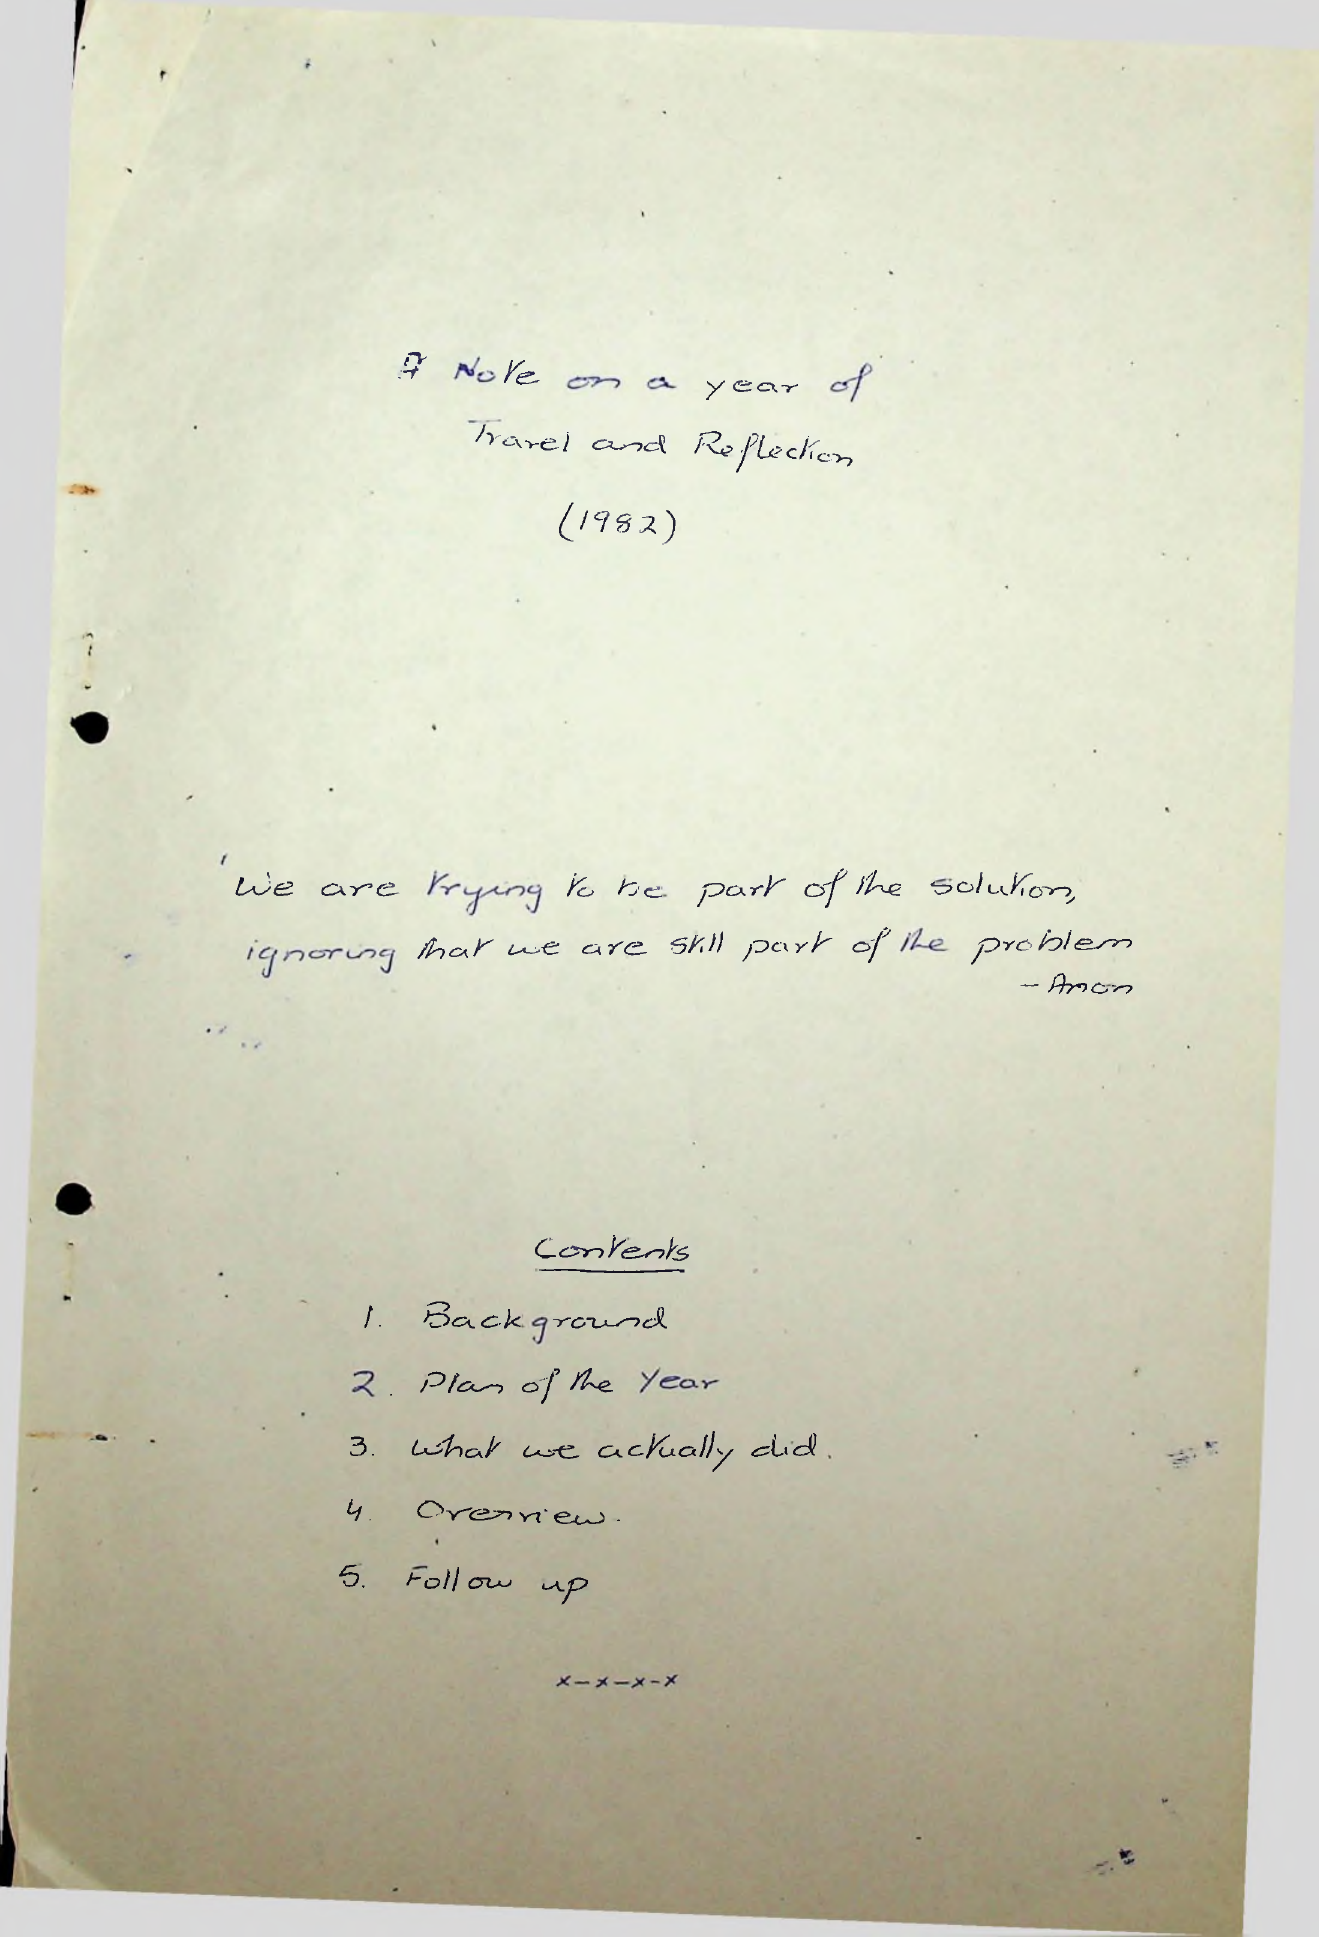 A Note on a year of
Travel and Reflection
(1982)
'We are trying to be part of the solution,
ignoring that we are still part of the problem
- Anon
Contents
1. Background
2. Plan of the Year
3. What we actually did.
4. Overview.
5. Follow up
x-x-x-x